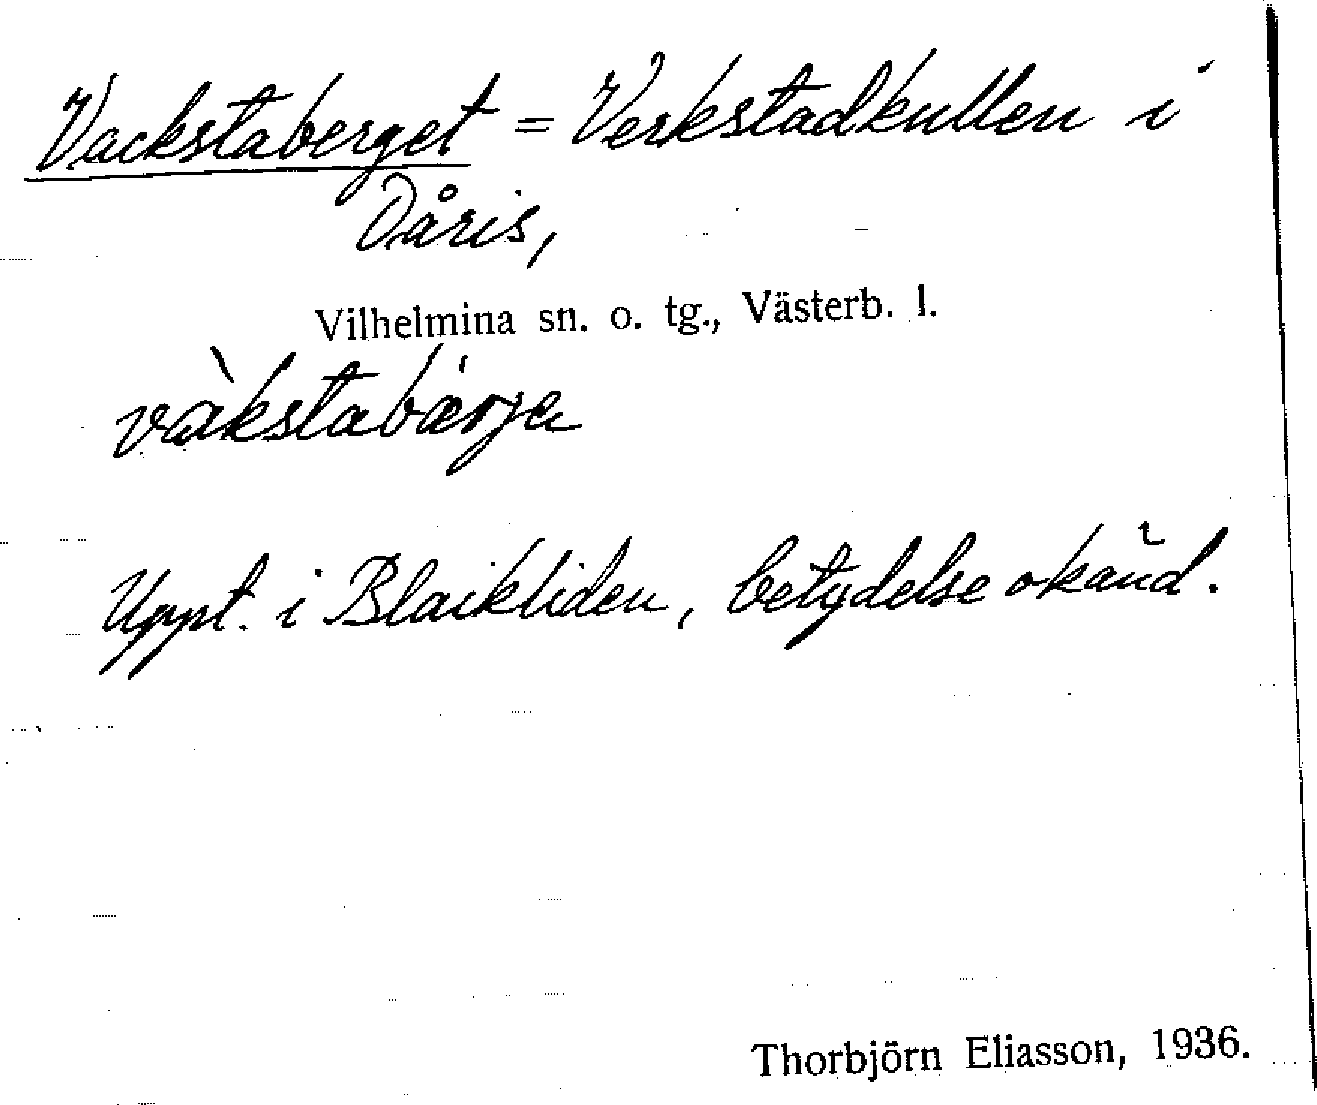 Vackstaberget = Verkstadkullen i
Dåris,
Vilhelmina sn. o. tg., Västerb. l.
vàkstabárja
Uppt. i Blaikliden, betydelse okänd.
Thorbjörn Eliasson, 1936.